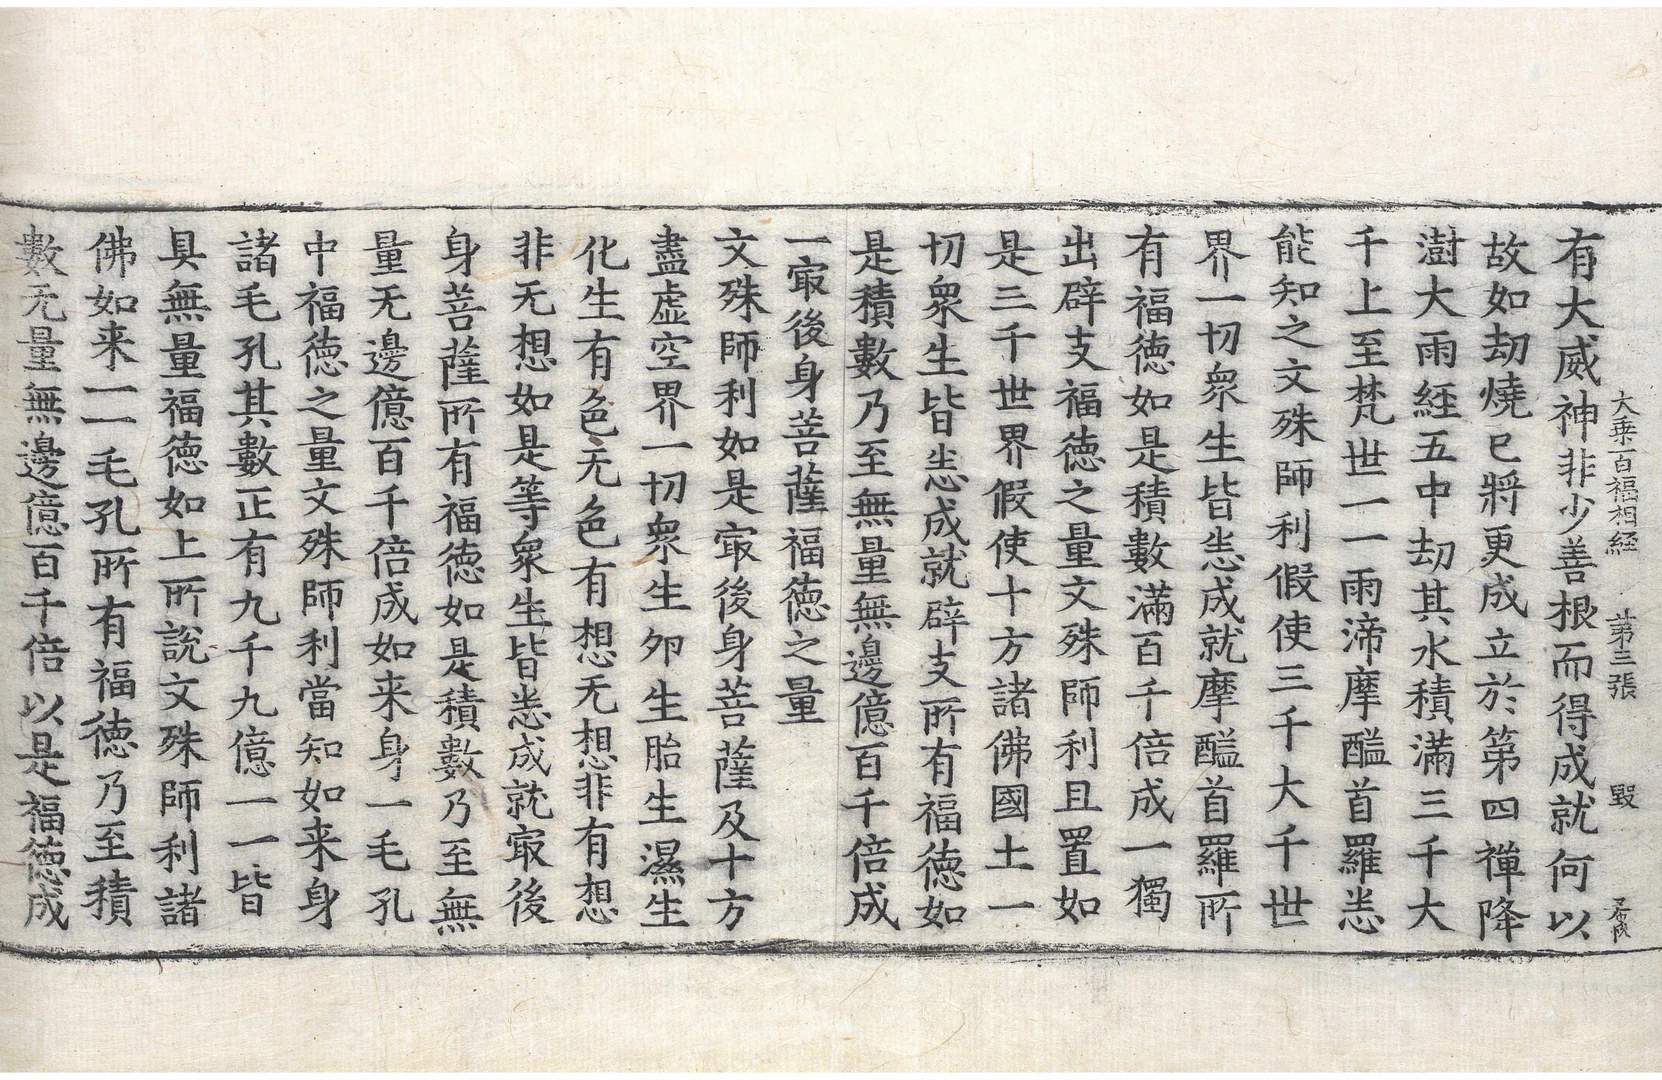 大乗百福相経 苐三張 毀
有大威神非少善根而得成就何以
故如劫燒已將更成立於第四禪降
澍大雨經五中劫其水積滿三千大
千上至梵世一一雨渧摩醯首羅悉
能知之文殊師利假使三千大千世
界一切衆生皆悉成就摩醯首羅所
有福德如是積數滿百千倍成一獨
出辟支福德之量文殊師利且置如
是三千世界假使十方諸佛國土一
切衆生皆悉成就辟支所有福德如
是積數乃至無量無邊億百千倍成
一㝡後身菩薩福德之量
文殊師利如是㝡後身菩薩及十方
盡虛空界一切衆生卵生胎生濕生
化生有色无色有想无想非有想
非无想如是等衆生皆悉成就㝡後
身菩薩所有福德如是積數乃至無
量无邊億百千倍成如来身一毛孔
中福德之量文殊師利當知如来身
諸毛孔其數正有九千九億一一皆
具無量福德如上所說文殊師利諸
佛如来一一毛孔所有福德乃至積
數无量無邊億百千倍以是福德成